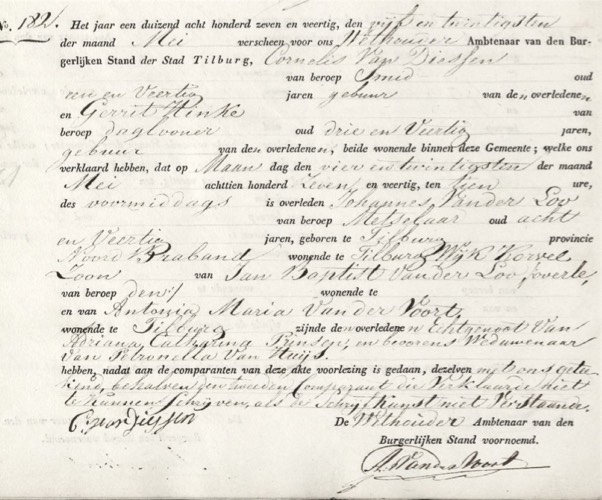 No. 182. Het jaar een duizend acht honderd zeven en veertig, den vijf en twintigsten
der maand Mei verscheen voor ons Wethouder Ambtenaar van den Bur-
gerlijken Stand der Stad Tilburg, Cornelis Van Diessen
van beroep Smid oud
een en Veertig jaren gebuur van de n overledenen
en Gerrit Hinke van
beroep daglooner oud drie en Veertig jaren,
gebuur van den overledenen, beide wonende binnen deze Gemeente; welke ons
verklaard hebben, dat op Maan dag den vier en twintigsten der maand
Mei achttien honderd Zeven en veertig, ten tien ure,
des voormiddags is overleden Johannes Vander Loo
van beroep Metselaar oud acht
en Veertig jaren, geboren te Tilburg provincie
Noord Braband wonende te Tilburg Wijk Korvel
Zoon van Jan Baptist Vander Loo, overle,
van beroep den:/ wonende te
en van Antonia Maria Van der Voort,
wonende te Tilburg zijnde den overledene n Echtgenoot Van
Adriana Catharina Prinsen, en bevorens Weduwenaar
van Petronella Van Huijs.
hebben, nadat aan de comparanten van deze akte voorlezing is gedaan, dezelve met ons geteé-
kend, behalven den tweeden Comparant die Verklaarde niet
te kunnen Schrijven, als de Schrijfkunst niet Verstaande.
C: van Diessen
De Wethouder Ambtenaar van den
Burgerlijken Stand voornoemd.
A. Vander Voort